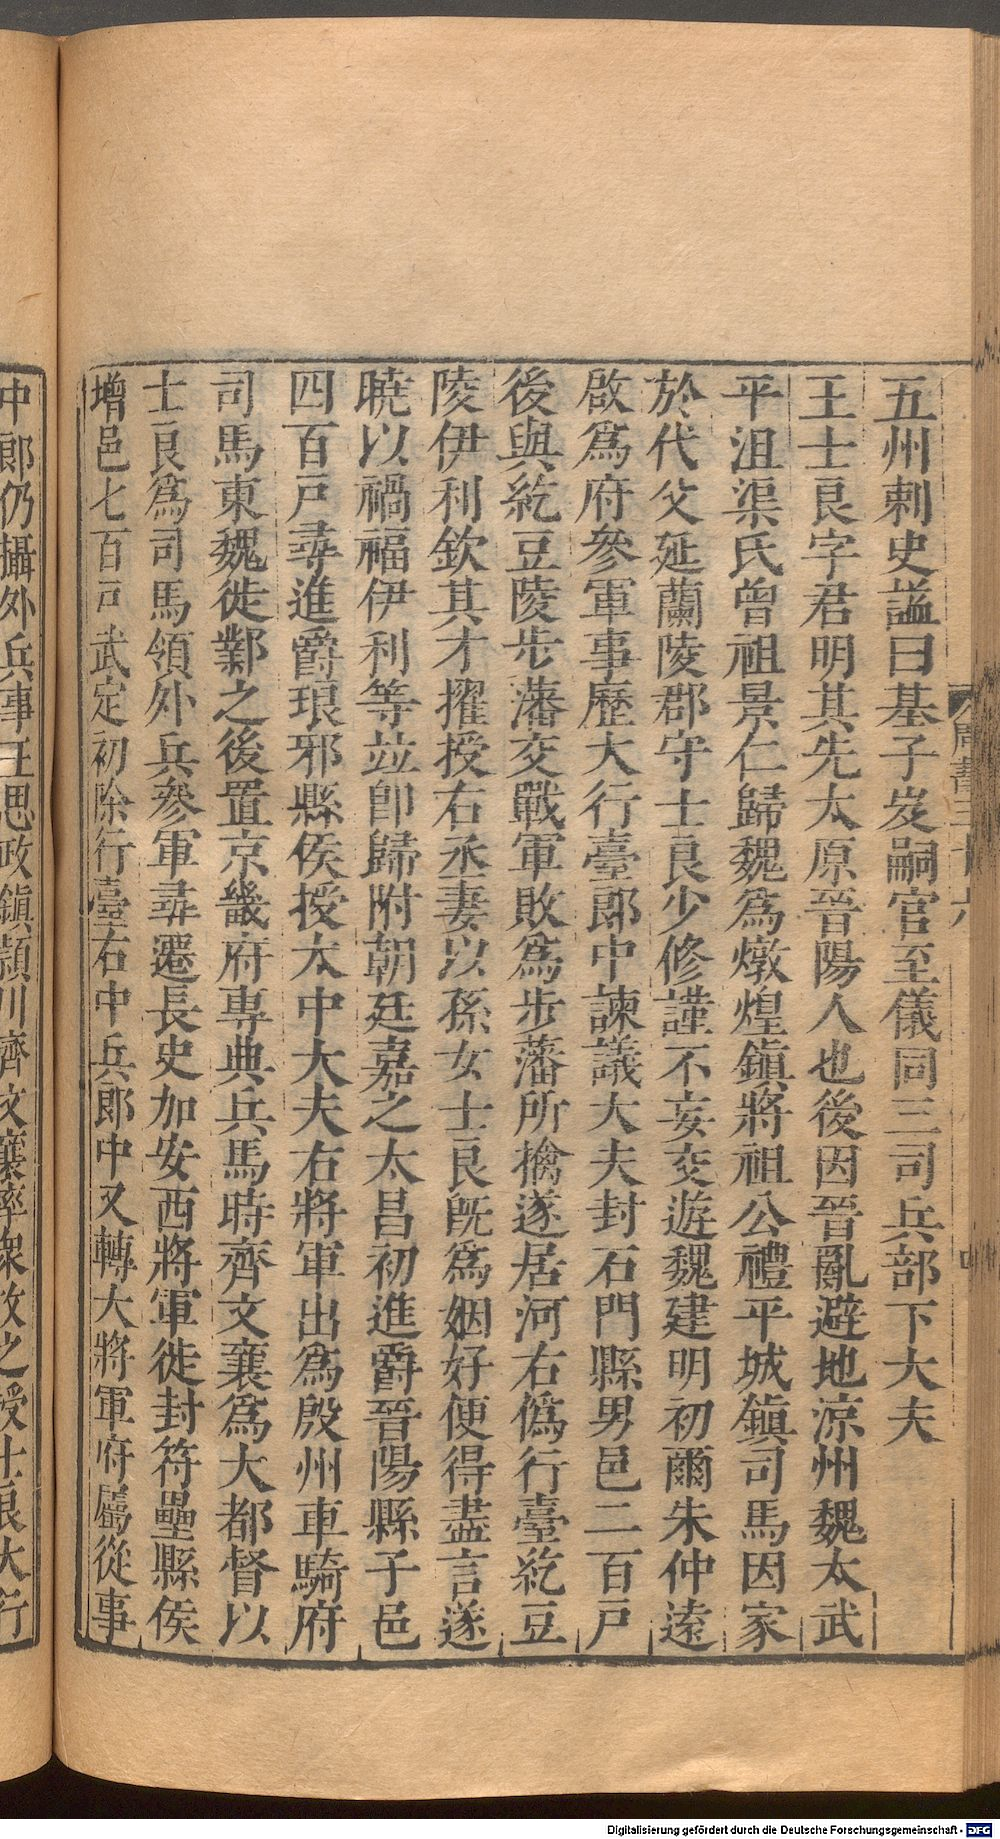 五州刺史謚曰基子炭嗣官至儀同三司兵部下大夫
王士良字君明其先太原晉陽人也後因晉亂避地涼州魏太武
平沮渠氏曾祖景仁歸魏爲燉煌鎭將祖公禮平城鎭司馬因家
於代父延蘭陵郡守士良少修謹不妄交遊魏建明初爾朱仲遠
啟爲府參軍事歷大行臺郎中諫議大夫封石門縣男邑二百戸
後與紇豆陵步藩交戰軍敗爲步藩所擒遂居河右僞行臺紇豆
陵伊利欽其才擢授右丞妻以孫女士良旣爲姻好便得盡言遂
曉以禍福伊利等竝卽歸附朝廷嘉之太昌初進爵晉陽縣子邑
四百戸尋進爵琅邪縣侯授太中大夫右將軍出爲殷州車騎府
司馬東魏徙鄴之後置京畿府專典兵馬時齊文襄爲大都督以
士良爲司馬領外兵參軍尋遷長史加安西將軍徙封符壘縣侯
增邑七百戸武定初除行臺右中兵郎中又轉大將軍府屬從事
中郎仍攝外兵事王思政鎭潁川齊文襄率衆攻之授士良大行
周書三十六
四
Digitalisierung gefördert durch die Deutsche Forschungsgemeinschaft - DFG